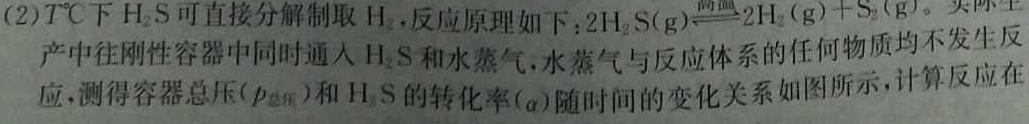 (2)T℃下 H₂S可直接分解制取 H₂,反应原理如下:2H₂S(g)⇌(高温)2H₂(g)+S₂(g)。实际生
产中往刚性容器中同时通入 H₂S 和水蒸气,水蒸气与反应体系的任何物质均不发生反
应,测得容器总压(p总压)和 H₂S 的转化率(α)随时间的变化关系如图所示,计算反应在